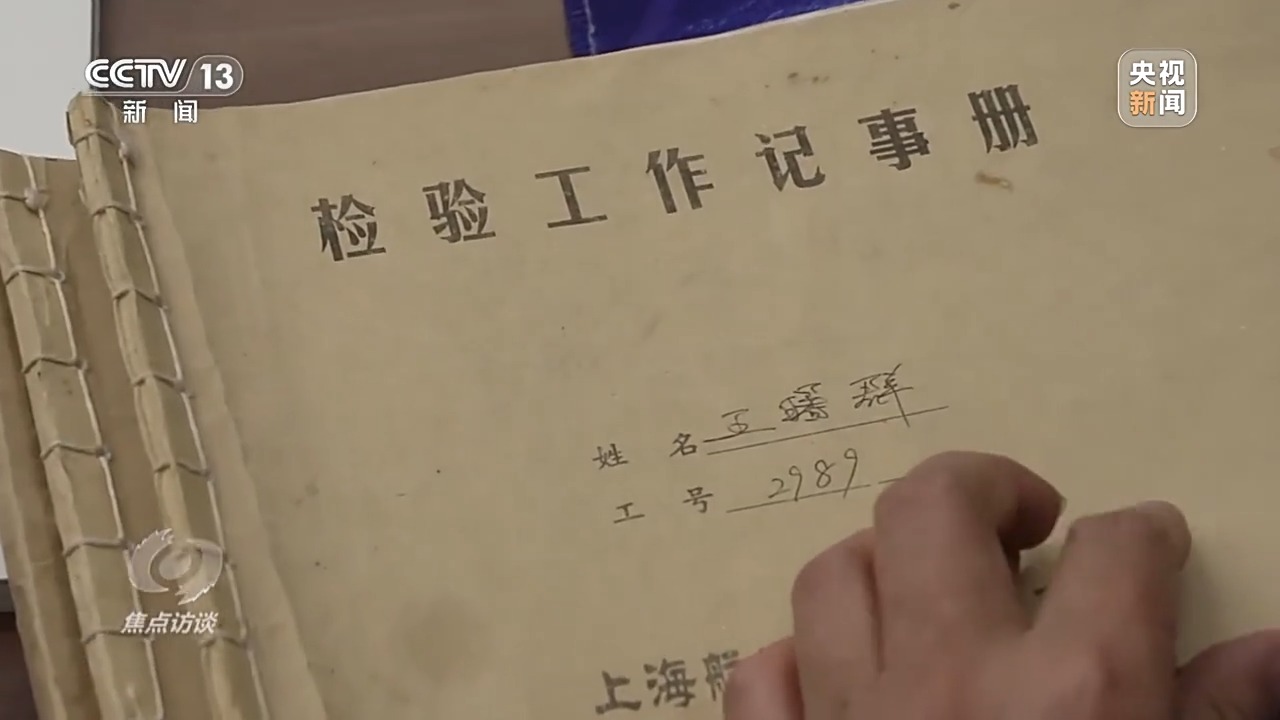 CCTV 13
新闻
央视
新闻
检验工作记事册
姓名 王
工号 2989
上海航
焦点访谈